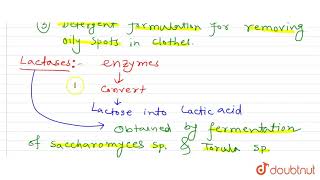 ③ Detergent formulation for removing
oily spots in clothes.
Lactases:- enzymes
Convert
Lactose into Lactic acid
Obtained by fermentation
of Saccharomyces sp. & Torula sp.
doubtnut